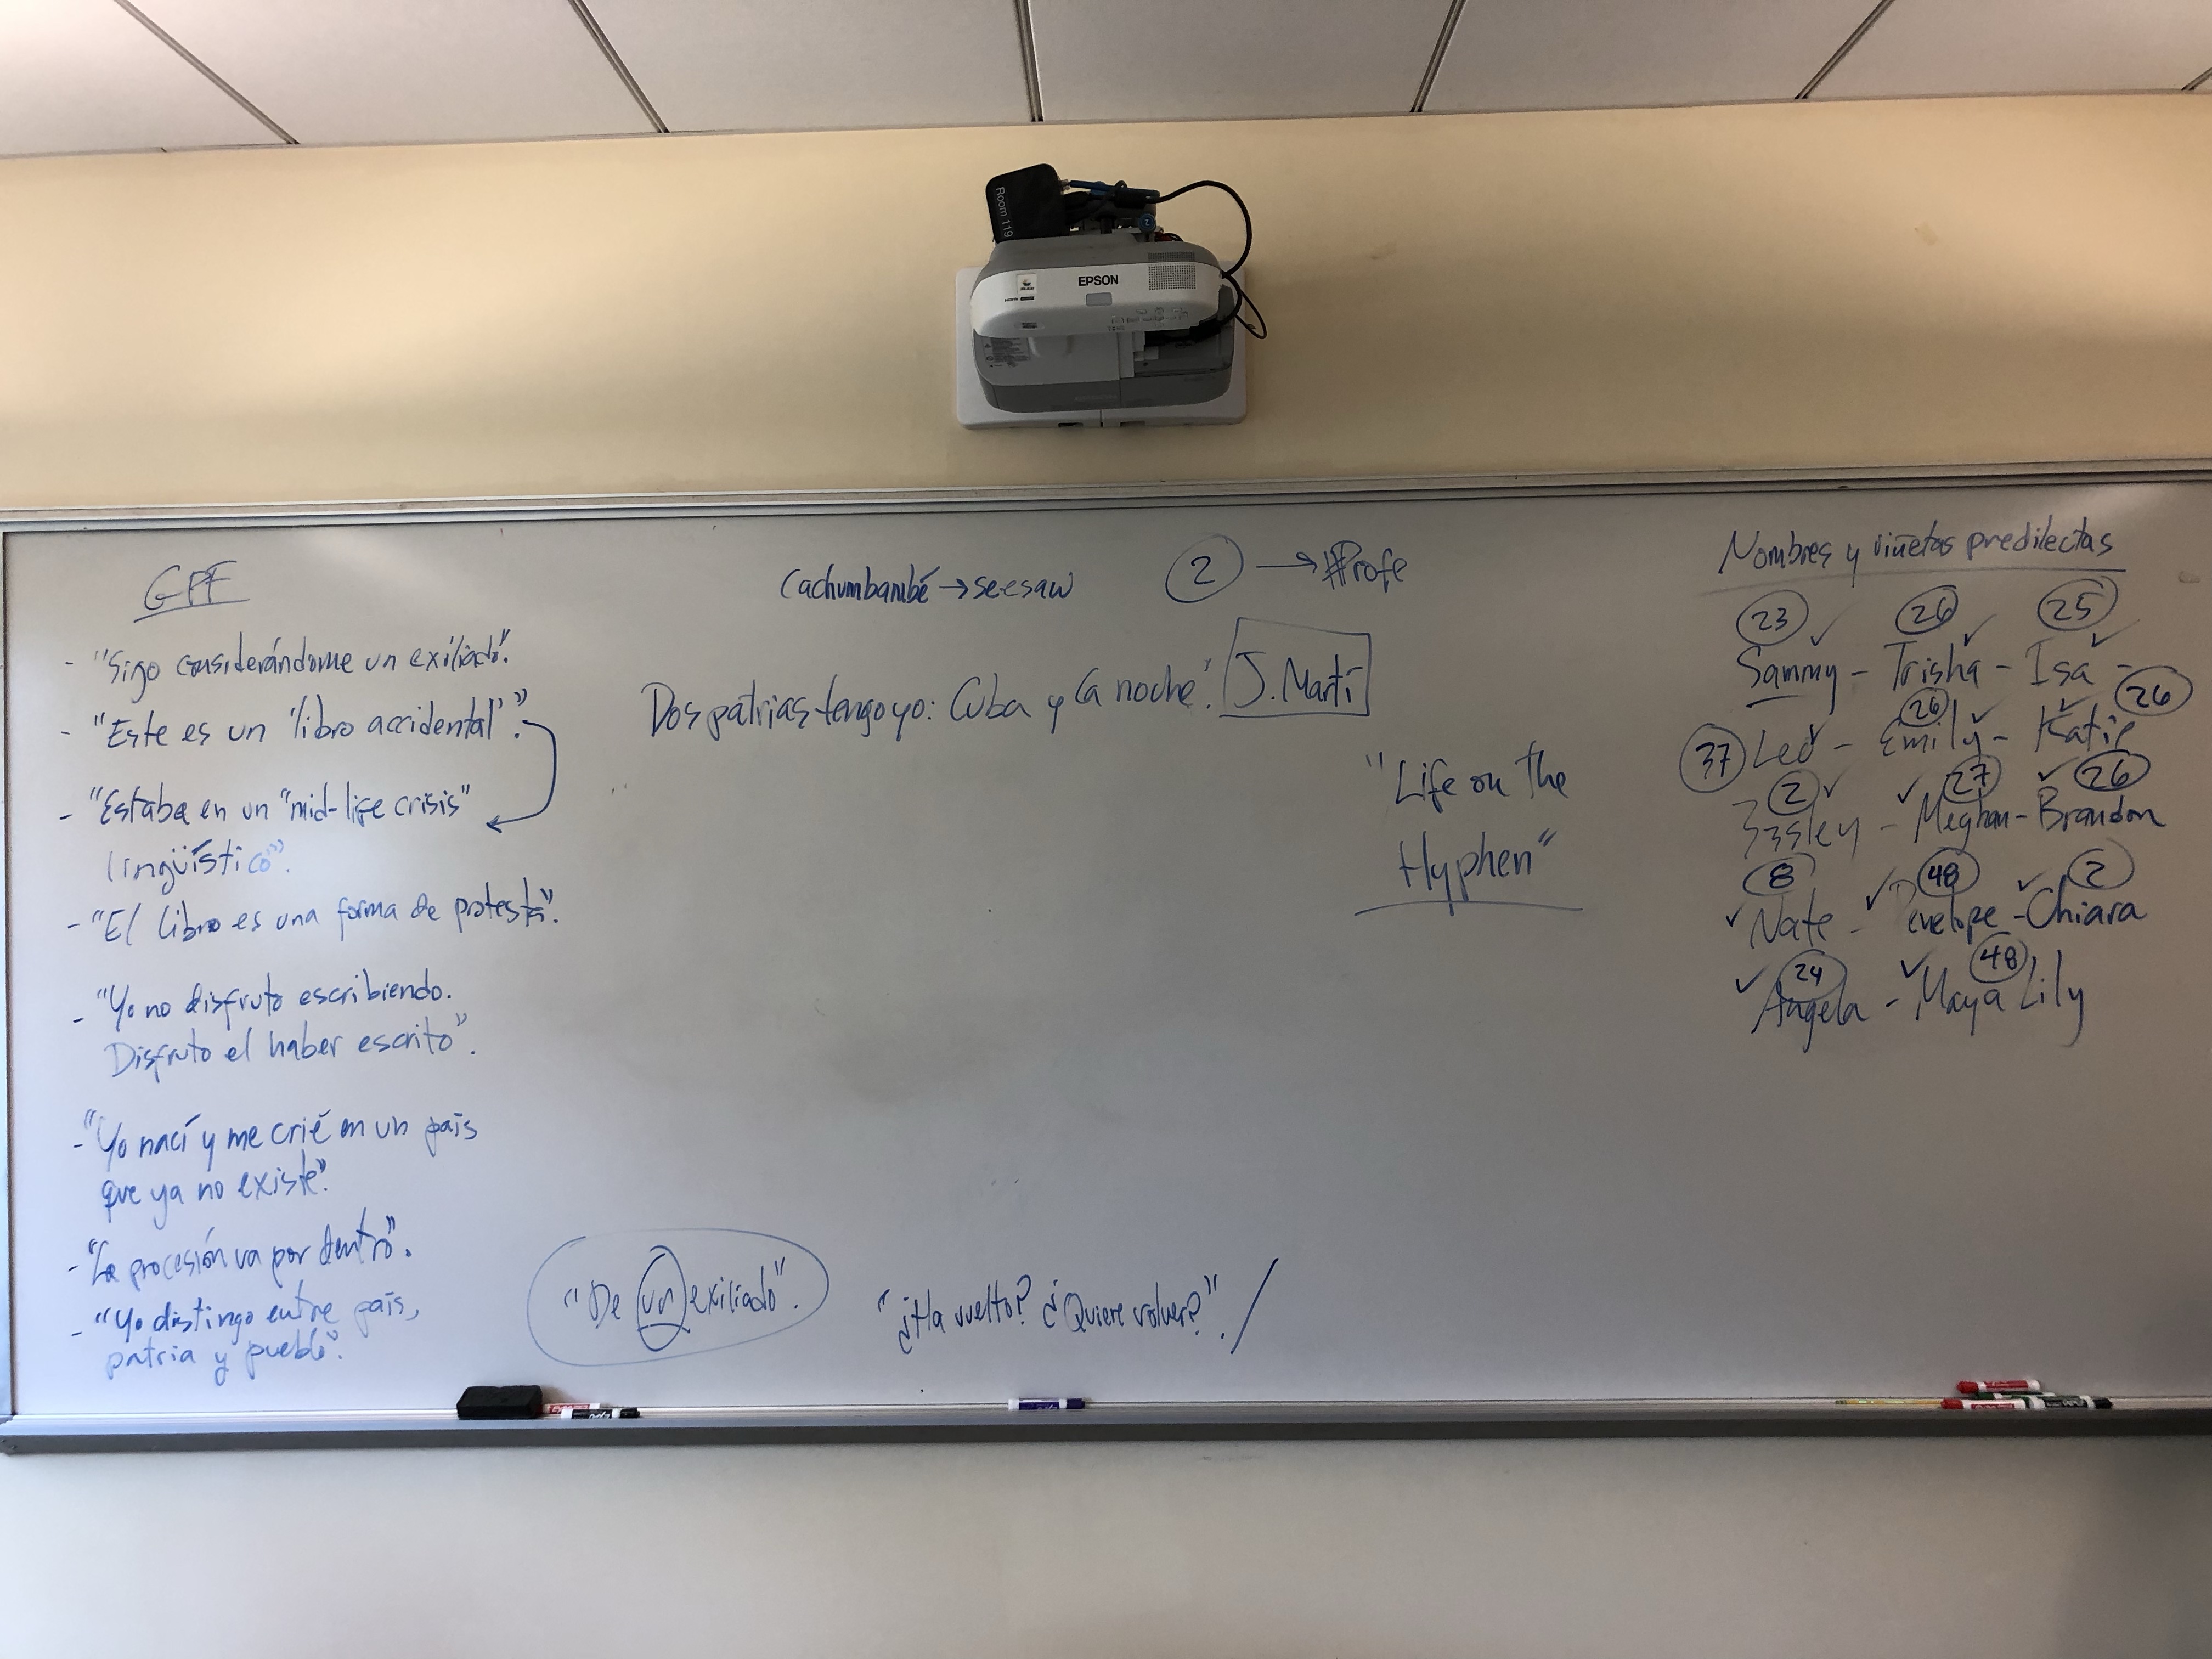 Room 119
EPSON
GPF
- "Sigo considerándome un exiliado".
- "Este es un 'libro accidental'".
- "Estaba en un "mid-life crisis"
lingüístico".
- "El libro es una forma de protesta".
- "Yo no disfruto escribiendo.
Disfruto el haber escrito".
- "Yo nací y me crié en un país
que ya no existe".
- "La procesión va por dentro".
- "Yo distingo entre país,
patria y pueblo".
Cachumbambé → seesaw
2 → #Profe
Dos patrias tengo yo: Cuba y la noche". J. Martí
"Life on the
Hyphen"
"De un exiliado".
"¿Ha vuelto? ¿Quiere volver?". /
Nombres y viñetas predilectas
23 26 25
Sammy - Trisha - Isa -
26 26
37 Leo - Emily - Katie
2 27 26
- Meghan - Brandon
8 48 2
Nate - Penelope - Chiara
24 48
Angela - Maya Lily